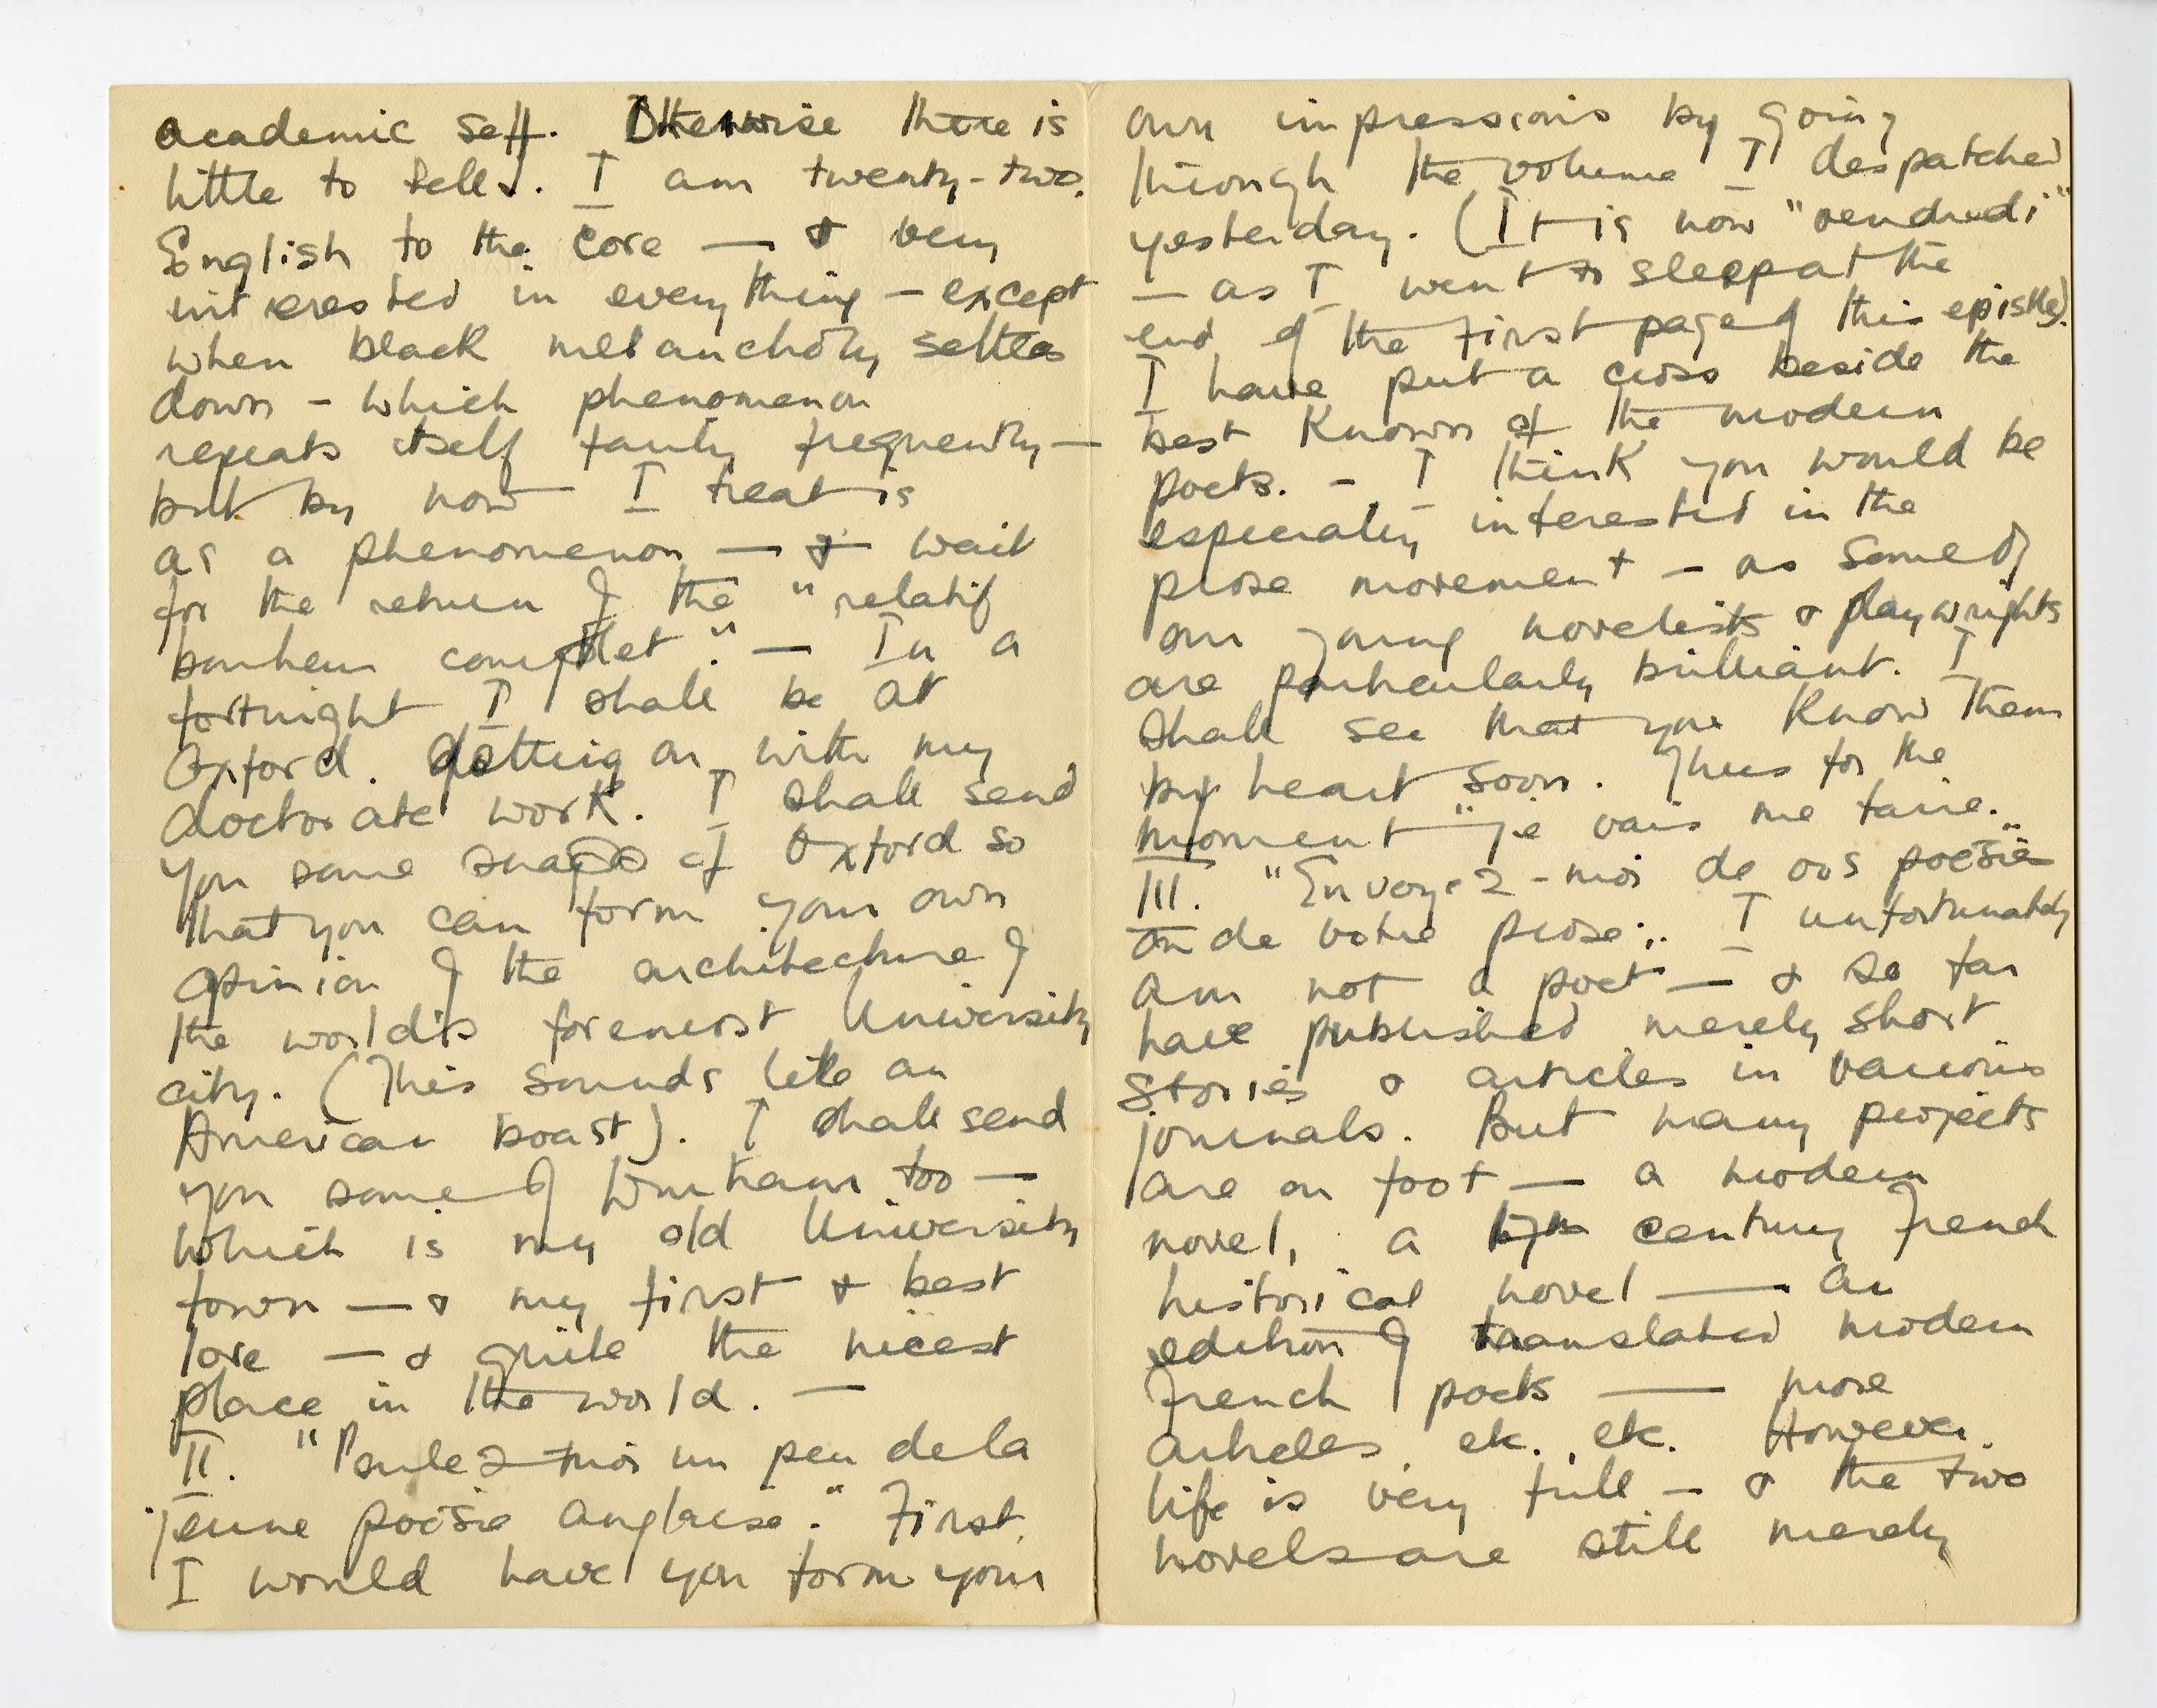 academic self. Otherwise there is
little to tell. I am twenty-two,
English to the core — & very
interested in everything — except
when black melancholy settles
down — which phenomenon
repeats itself fairly frequently —
but by now I treat is
as a phenomenon — & wait
for the return of the "relatif
bonheur complet". — In a
fortnight I shall be at
Oxford. Getting on with my
doctorate work. I shall send
you some snaps of Oxford so
that you can form your own
opinion of the architecture of
the world's foremost University
city. (This sounds like an
American boast). I shall send
you some of Durham too —
which is my old University
town — & my first & best
love — & quite the nicest
place in the world. —
II. "Parlez-moi un peu de la
jeune poësie anglaise." First,
I would have you form your
own impressions by going
through the volume I despatched
yesterday. (It is now "vendredi"
— as I went to sleep at the
end of the first page of this epistle).
I have put a cross beside the
best known of the modern
poets. — I think you would be
especially interested in the
prose movement — as some of
our young novelists & playwrights
are particularly brilliant. I
shall see that you know them
by heart soon. Thus for the
moment "je vais me taire."
III. "Envoyez-moi de vos poësie
ou de votre prose". I unfortunately
am not a poet — & so far
have published merely short
stories & articles in various
journals. But many projects
are on foot — a modern
novel, a 17th century French
historical novel — an
edition of translated modern
French poets — more
articles etc. etc. However.
life is very full — & the two
novels are still merely